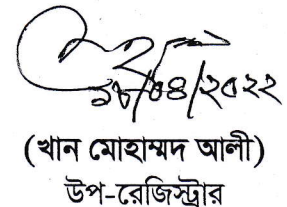 ১৮/০৪/২০২২
(খান মোহাম্মদ আলী)
উপ-রেজিস্ট্রার